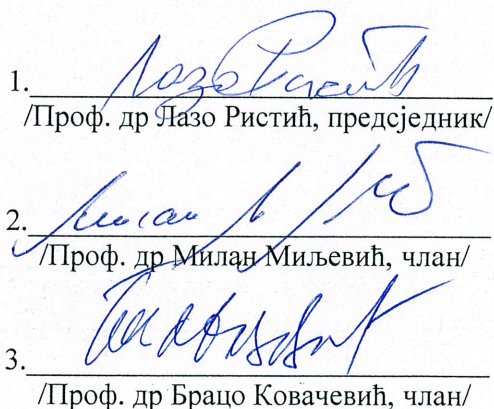 1. Лазо Ристић
/Проф. др Лазо Ристић, предсједник/
2.
/Проф. др Милан Миљевић, члан/
3.
/Проф. др Брацо Ковачевић, члан/